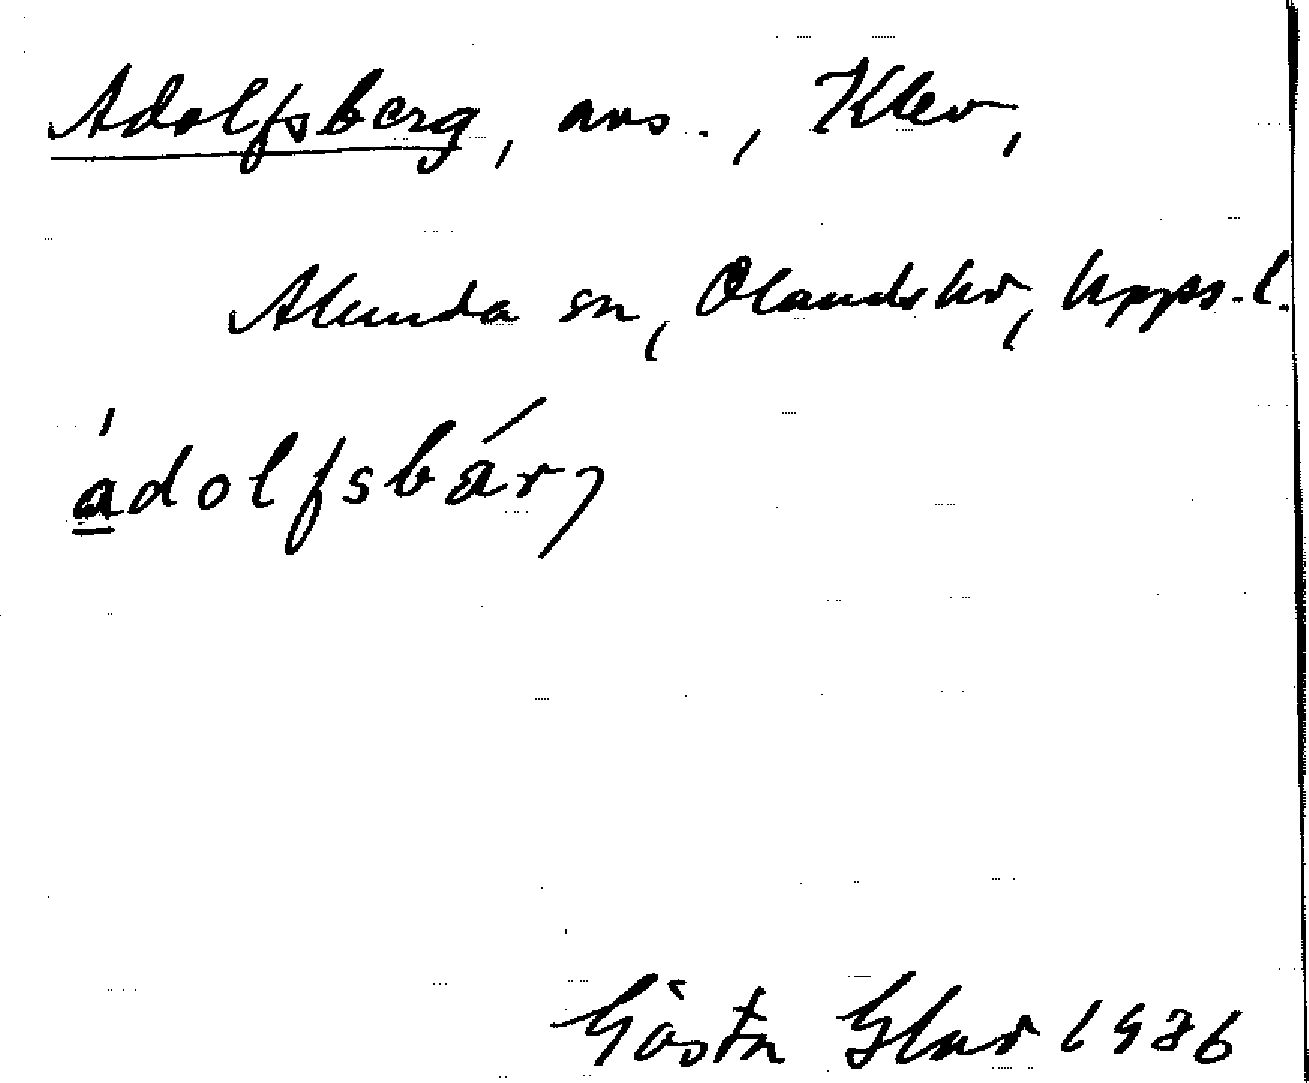 Adolfsberg, avs., Klev,
Alunda sn, Olands hd, Upps. l.
ádolfsbárj
Gösta